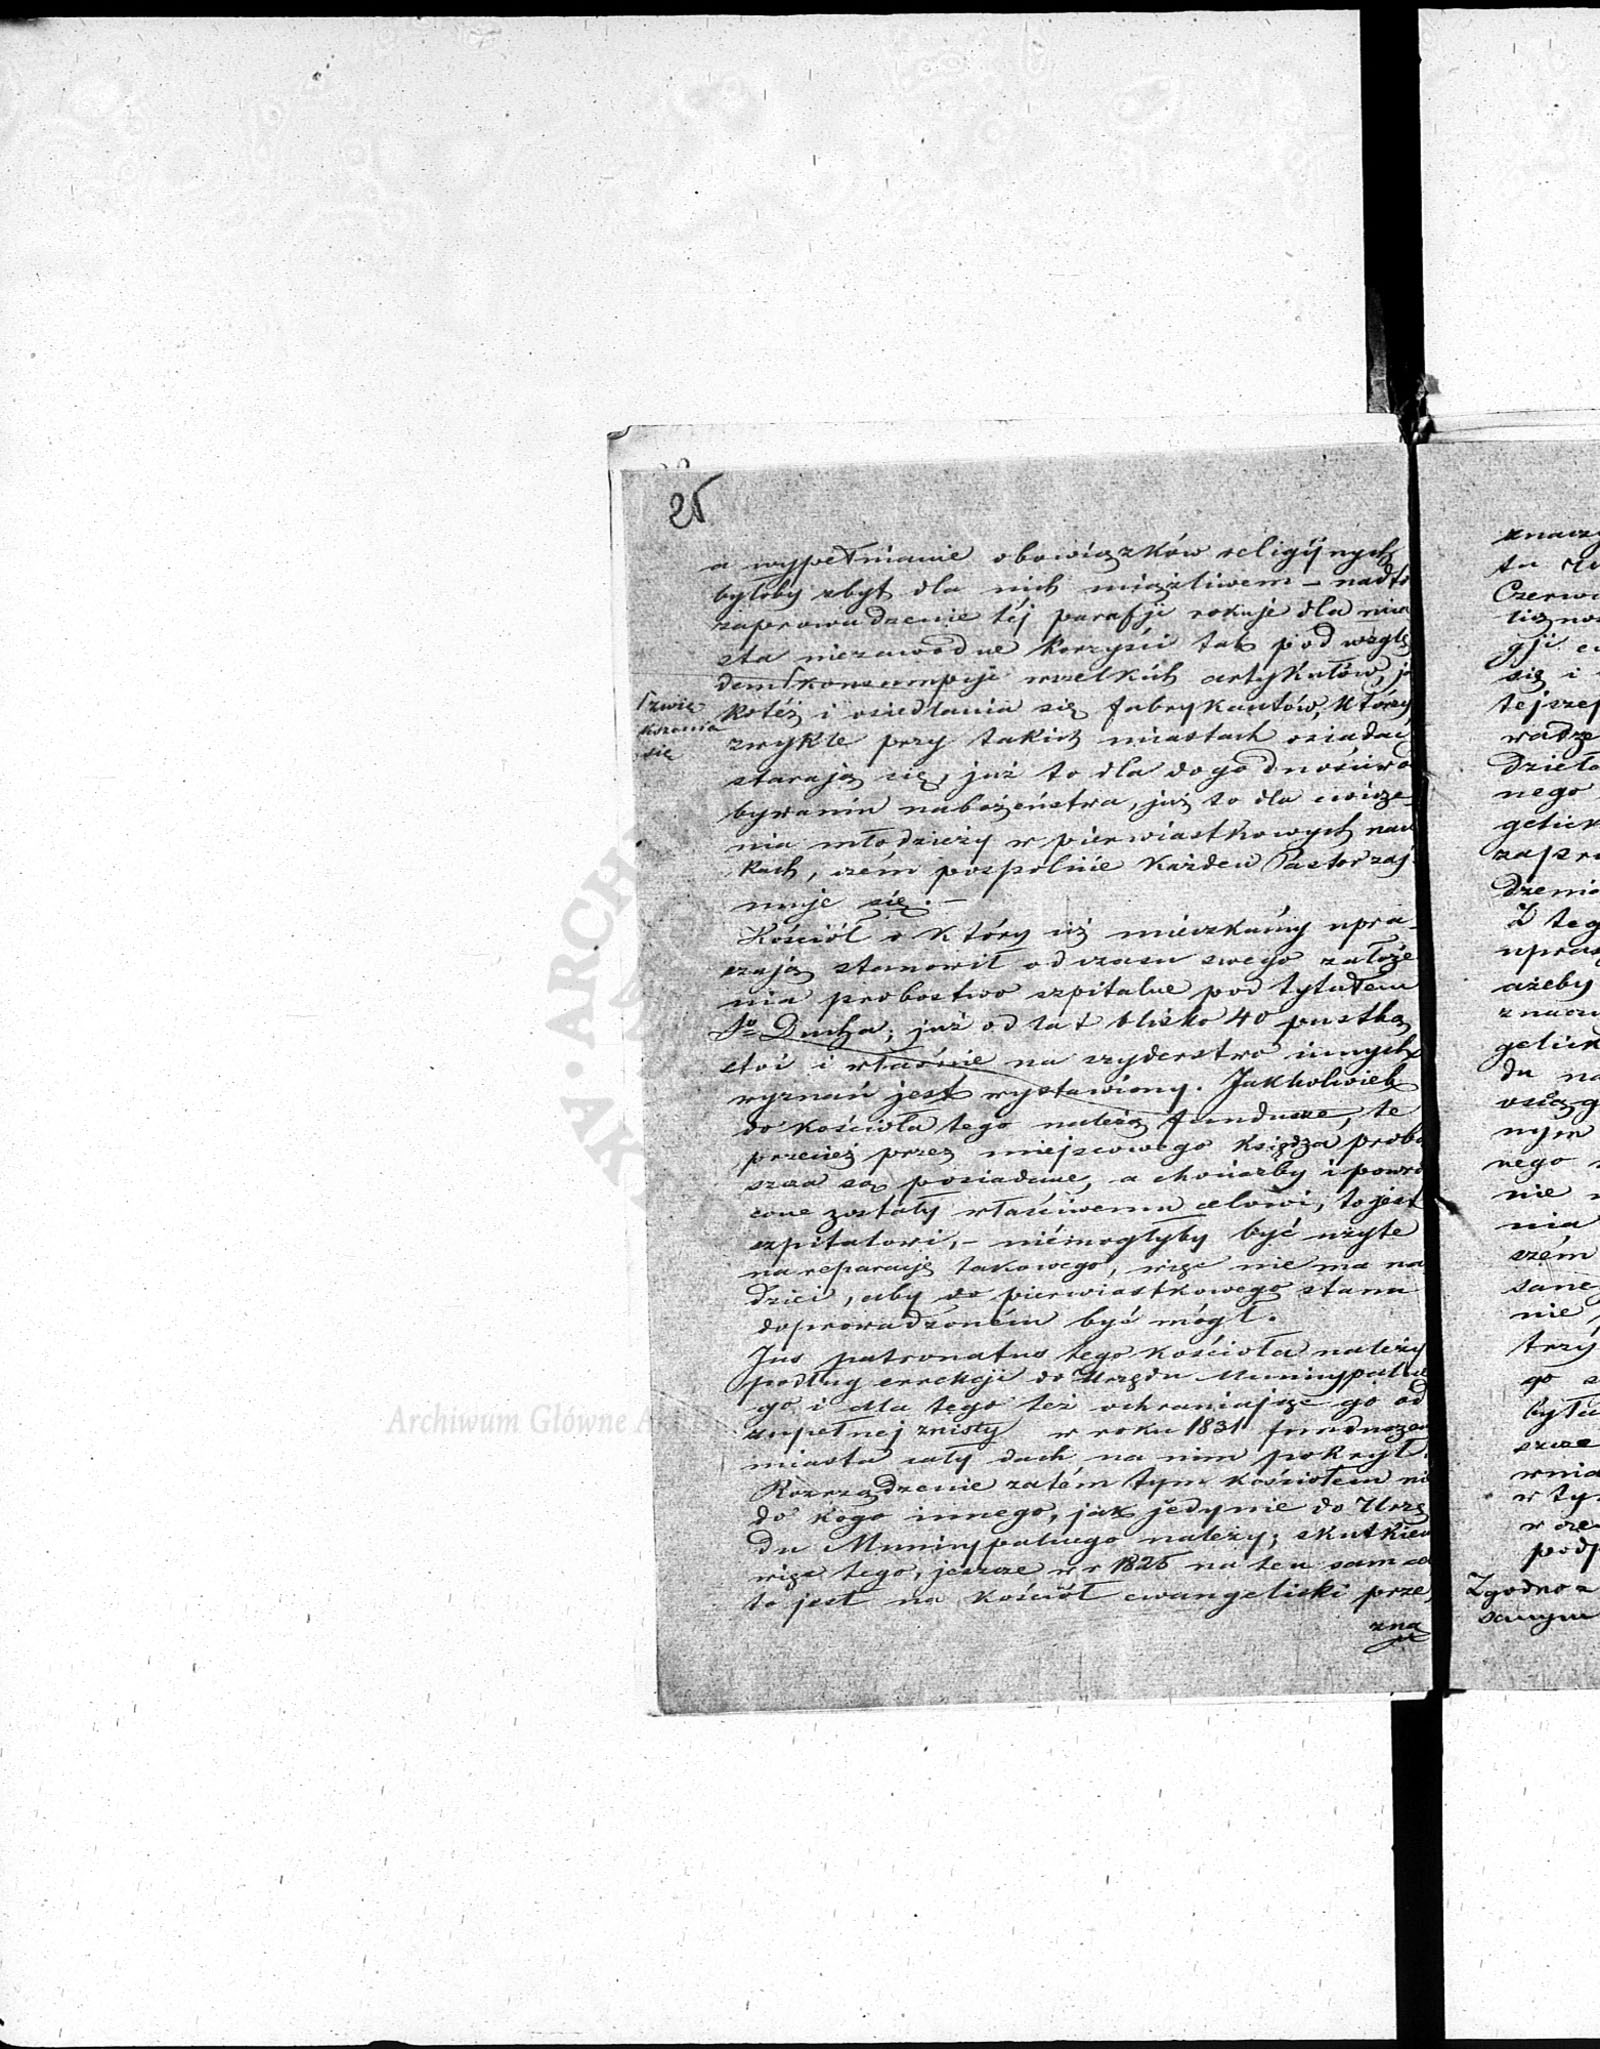 25
a wypełnianie obowiązków religijnych
byłoby zbyt dla nich uciążliwem – nadto
zaprowadzenie téj parafji rokuje dla mia
sta niezawodne korzyści tak pod wzglę
dem konsumpcji wszelkich artykułów, ja
zwię
kszenia
się
kotéż i osiedlania się fabrykantów, którzy
zwykle przy takich miastach osiadać
starają się, już to dla dogodności w o
bywaniu nabożeństwa, już to dla ćwicze
nia młodzieży w pierwiastkowych nau
kach, czém pospolicie każden Pastor zaj
muje się. –
Kościół o który ciż mieszkańcy upra
szają stanowił od czasu swego założe
nia probostwo szpitalne pod tytułem
Sgo Ducha; już od lat blisko 40 pustką
stoi i właśnie na szyderstwo innych
wyznań jest wystawiony. Jakkolwiek
do kościoła tego należą fundusze, te
przecież przez miejscowego księdza probo
szcza są posiadane, a chociażby i powró
cone zostały właściwemu celowi, to jest
szpitalowi, – niémogłyby być użyte
na reparację takowego, więc nie ma na
dziei, aby do pierwiastkowego stanu
doprowadzoném być mógł.
Jus patronatus tego kościoła należy
podług errekcji do Urzędu Municypalne
go i dla tego też ochraniając go od
zupełnej znisty w roku 1831 funduszem
miasta cały dach na nim pokrył.
Rozrządzenie zatém tym kościołem ni
do kogo innego, jak jedynie do Urzę
du Municypalnego należy; skutkiem
więc tego, jeszcze w r 1825 na ten sam cel
to jest na kościół ewangelicki prze
zna
znaczy
Czerw
się i
tejszej
wadze
dzieło
nego
gelick
zapro
dzenia
Z teg
upras
ażeby
znacz
gelick
du na
osiąg
nym
nego
nie
nia
czém
sane
nie
trzy
go
była
szcze
wnia
w ty
podp
Zgodno z
samym
Archiwum Główne Ak